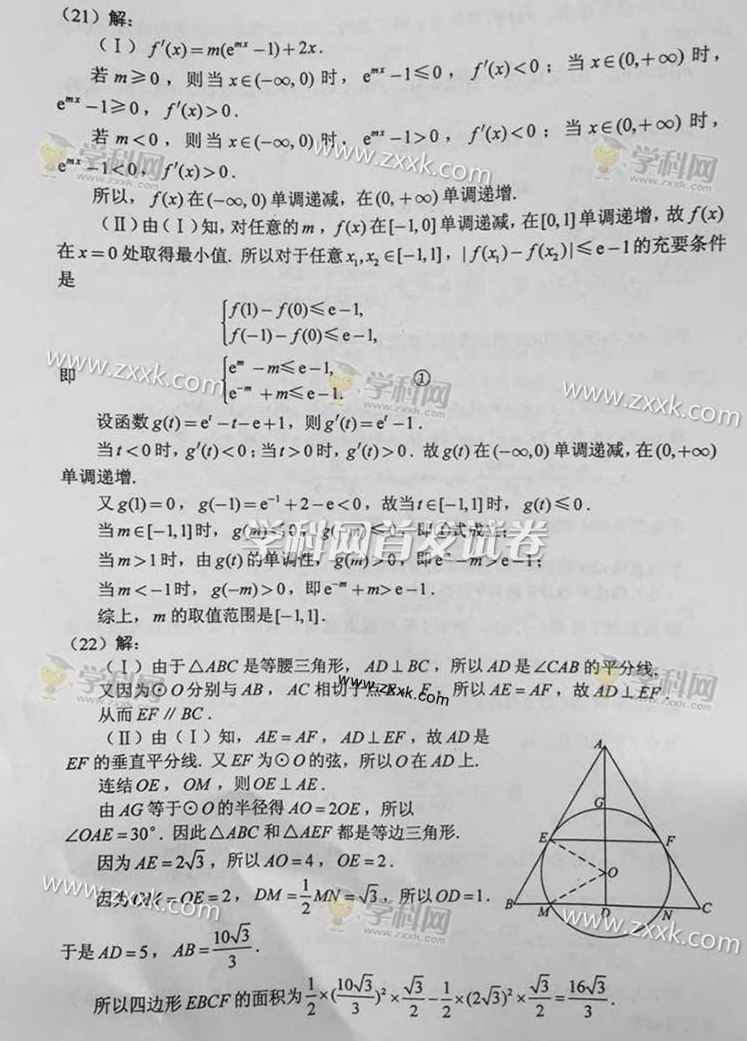 (21)解:
(Ⅰ) f′(x)=m(eᵐˣ−1)+2x.
若 m≥0, 则当 x∈(−∞,0) 时, eᵐˣ−1≤0, f′(x)<0; 当 x∈(0,+∞) 时,
eᵐˣ−1≥0, f′(x)>0.
若 m<0, 则当 x∈(−∞,0) 时, eᵐˣ−1>0, f′(x)<0; 当 x∈(0,+∞) 时,
eᵐˣ−1<0, f′(x)>0.
所以, f(x)在(−∞,0)单调递减, 在(0,+∞)单调递增.
(Ⅱ)由(Ⅰ)知, 对任意的m, f(x)在[−1,0]单调递减, 在[0,1]单调递增, 故 f(x)
在 x=0 处取得最小值. 所以对于任意 x₁,x₂∈[−1,1], |f(x₁)−f(x₂)|≤e−1的充要条件
是
f(1)−f(0)≤e−1,
f(−1)−f(0)≤e−1,
即 eᵐ−m≤e−1, ①
e⁻ᵐ+m≤e−1.
设函数 g(t)=eᵗ−t−e+1, 则 g′(t)=eᵗ−1.
当t<0时, g′(t)<0; 当t>0时, g′(t)>0. 故g(t)在(−∞,0)单调递减, 在(0,+∞)
单调递增.
又 g(1)=0, g(−1)=e⁻¹+2−e<0, 故当t∈[−1,1]时, g(t)≤0.
当 m∈[−1,1]时, g(m)≤0, g(−m)≤0, 即①式成立;
当 m>1时, 由 g(t) 的单调性, g(m)>0, 即eᵐ−m>e−1;
当 m<−1时, g(−m)>0, 即e⁻ᵐ+m>e−1.
综上, m 的取值范围是[−1,1].
(22)解:
(Ⅰ)由于△ABC 是等腰三角形, AD⊥BC, 所以 AD 是∠CAB 的平分线.
又因为⊙O分别与 AB, AC 相切于点E, F, 所以 AE=AF, 故 AD⊥EF.
从而 EF∥BC.
(Ⅱ)由(Ⅰ)知, AE=AF, AD⊥EF, 故 AD 是
EF 的垂直平分线. 又EF为⊙O的弦, 所以O在 AD 上.
连结 OE, OM, 则 OE⊥AE.
由 AG 等于⊙O的半径得 AO=2OE, 所以
∠OAE=30°. 因此△ABC 和△AEF 都是等边三角形.
因为 AE=2√3, 所以 AO=4, OE=2.
因为 OM=OE=2, DM=1/2 MN=√3, 所以OD=1.
于是 AD=5, AB=10√3/3.
所以四边形 EBCF 的面积为 1/2×(10√3/3)²×√3/2−1/2×(2√3)²×√3/2=16√3/3.
A
G
E
F
O
B
M
D
N
C
学科网
www.zxxk.com
zxxk.com
学科网
zxxk.com
www.zxxk.com
学科网
zxxk.com
www.zxxk.com
学科网首发试卷
学科网
zxxk.com
www.zxxk.com
学科网
zxxk.com
www.zxxk.com
学科网
zxxk.com
www.zxxk.com